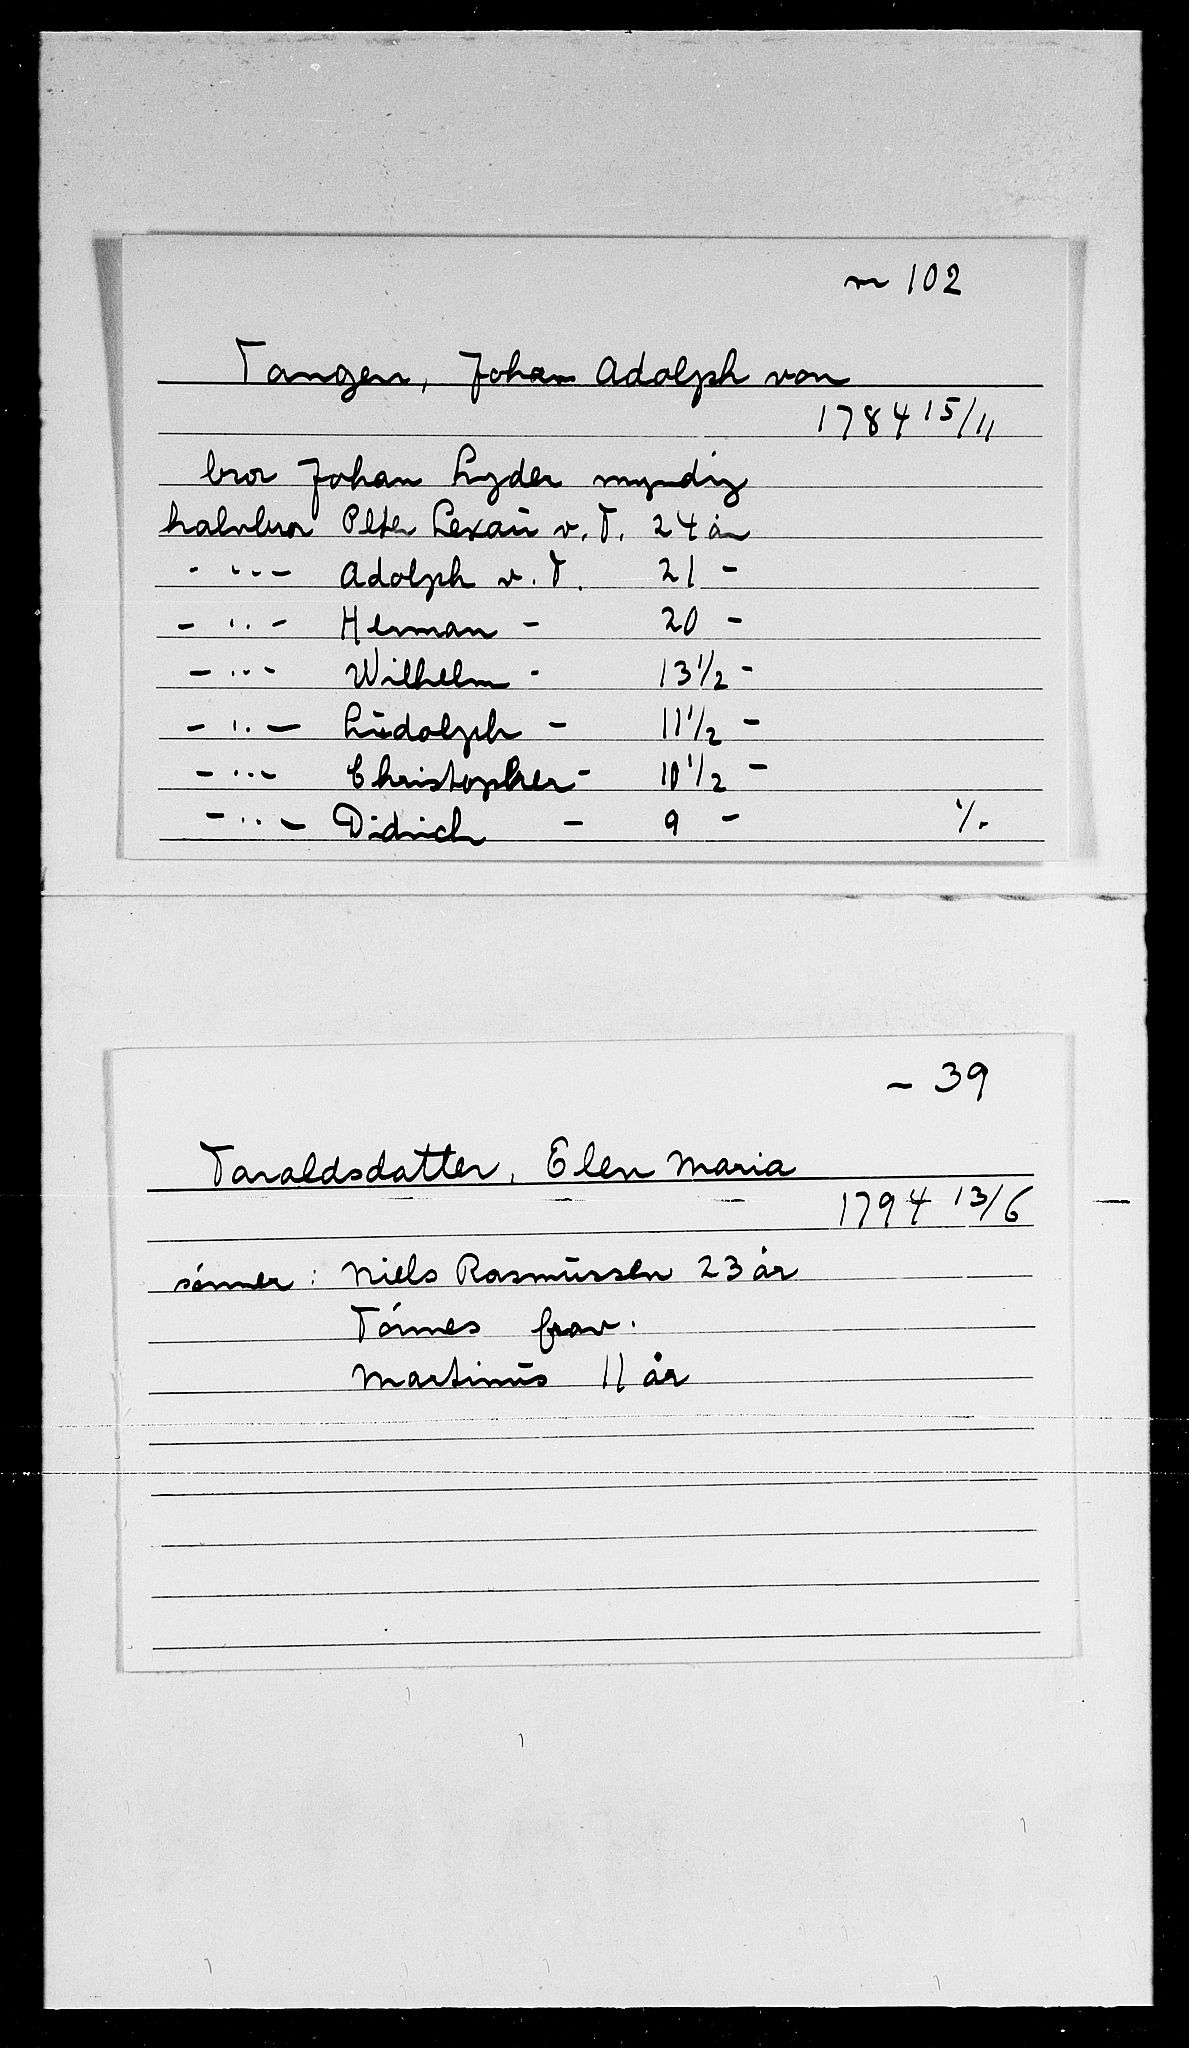 nr 102
Tangen, Johan Adolph von
1784 15/11
bror Johan Lyder myndig
halvbror Peter Lexau v. T. 24 år
- " - Adolph v. T. 21 -
- " - Herman - 20 -
- " - Wilhelm - 13 1/2 -
- " - Ludolph - 11 1/2 -
- " - Christopher - 10 1/2 -
- " - Didrich - 9 - ·/.
- 39
Taraldsdatter, Elen Maria
1794 13/6
sønner: Niels Rasmussen 23 år
Tønnes frav.
Martinus 11 år